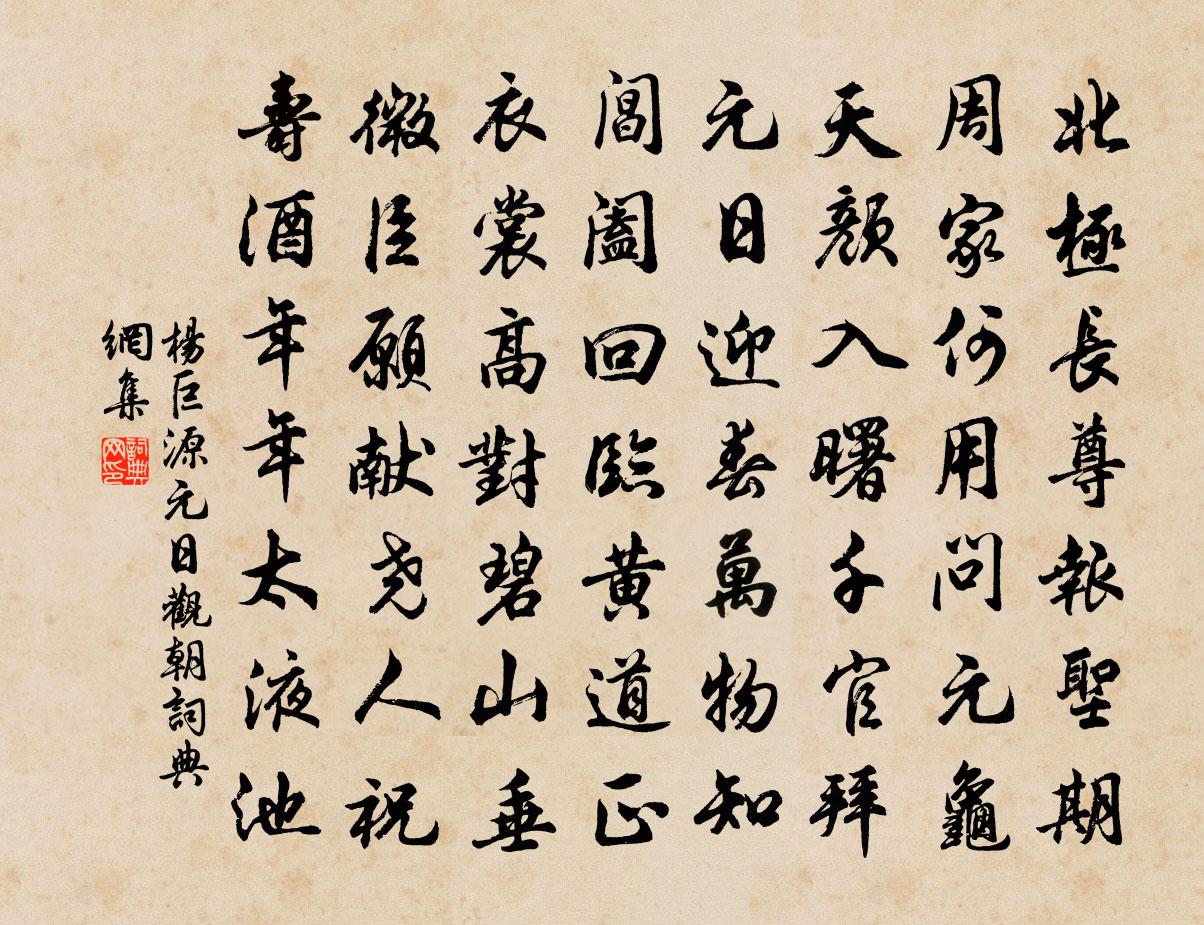 北極長尊報聖期
周家何用問元龜
天顏入曙千官拜
元日迎春萬物知
閶闔回臨黃道正
衣裳高對碧山垂
微臣願献尧人祝
壽酒年年太液池
楊巨源元日觀朝詞典
網集
詞典网印